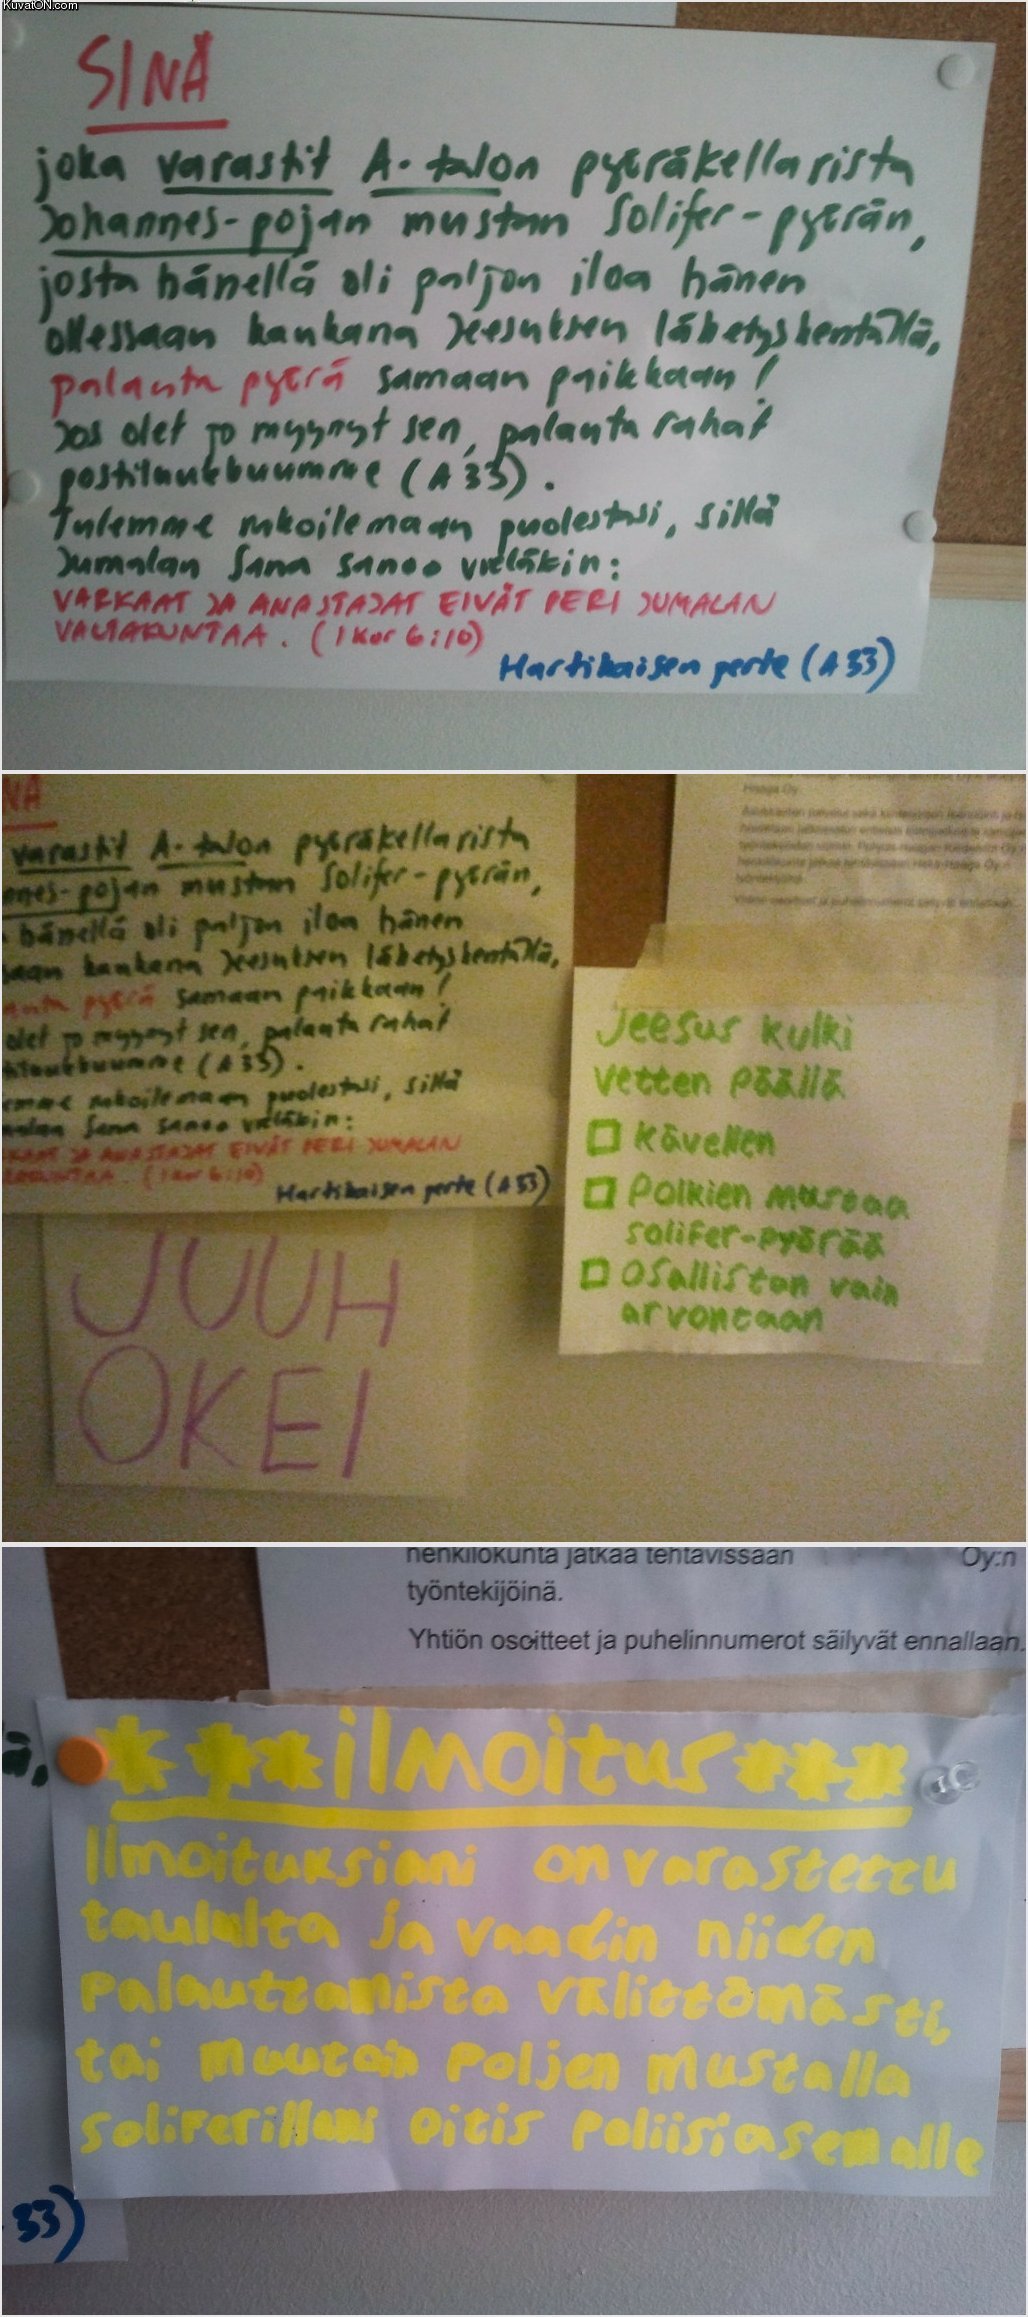 KuvatON.com
SINÄ
joka varastit A-talon pyöräkellarista
Johannes-pojan mustan Solifer-pyörän,
josta hänellä oli paljon iloa hänen
ollessaan kaukana Jeesuksen lähetyskentällä,
palauta pyörä samaan paikkaan!
Jos olet jo myynyt sen, palauta rahat
postiluukkuumme (A 33).
Tulemme rukoilemaan puolestasi, sillä
Jumalan Sana sanoo vieläkin:
VARKAAT JA ANASTAJAT EIVÄT PERI JUMALAN
VALTAKUNTAA. (1 Kor 6:10)
Hartikaisen perhe (A 33)
NÄ
varastit A-talon pyöräkellarista
nnes-pojan mustan Solifer-pyörän,
hänellä oli paljon iloa hänen
saan kaukana Jeesuksen lähetyskentällä,
auta pyörä samaan paikkaan!
olet jo myynyt sen, palauta rahat
tiluukkuumme (A 33).
emme rukoilemaan puolestasi, sillä
malan Sana sanoo vieläkin:
KAAT JA ANASTAJAT EIVÄT PERI JUMALAN
TAKUNTAA. (1 Kor 6:10)
Hartikaisen perhe (A 33)
Jeesus kulki
vetten päällä
kävellen
Polkien mustaa
solifer-pyörää
Osallistun vain
arvontaan
JUUH
OKEI
henkilökunta jatkaa tehtävissään Oy:n
työntekijöinä.
Yhtiön osoitteet ja puhelinnumerot säilyvät ennallaan.
ä,
***ilmoitus***
Ilmoituksiani on varastettu
taululta ja vaadin niiden
Palauttamista välittömästi,
tai muutoin Poljen mustalla
soliferillani oitis Poliisiasemalle
33)